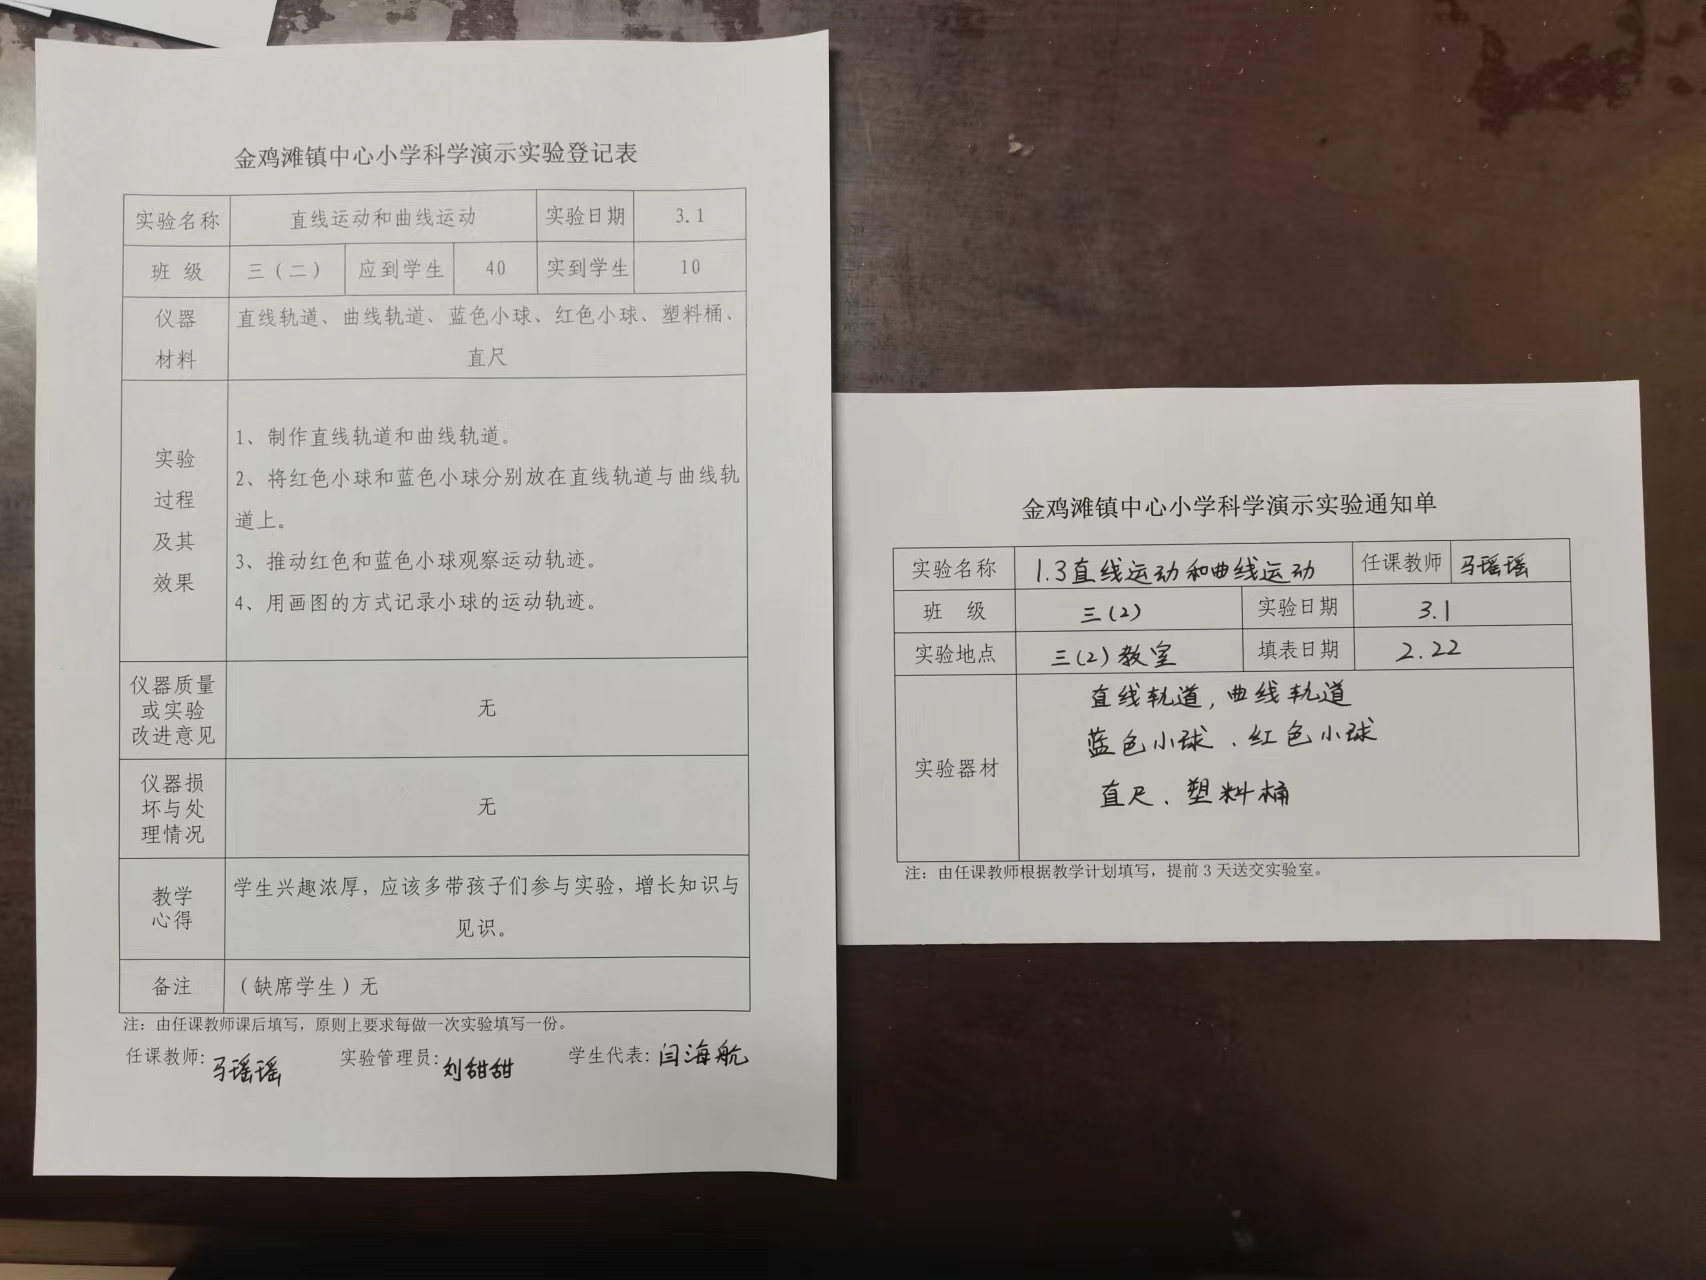 金鸡滩镇中心小学科学演示实验登记表
实验名称 直线运动和曲线运动 实验日期 3.1
班 级 三（二） 应到学生 40 实到学生 10
仪器
材料
直线轨道、曲线轨道、蓝色小球、红色小球、塑料桶、
直尺
实验
过程
及其
效果
1、制作直线轨道和曲线轨道。
2、将红色小球和蓝色小球分别放在直线轨道与曲线轨
道上。
3、推动红色和蓝色小球观察运动轨迹。
4、用画图的方式记录小球的运动轨迹。
仪器质量
或实验
改进意见
无
仪器损
坏与处
理情况
无
教学
心得
学生兴趣浓厚，应该多带孩子们参与实验，增长知识与
见识。
备注 （缺席学生）无
注：由任课教师课后填写，原则上要求每做一次实验填写一份。
任课教师：马瑶瑶 实验管理员：刘甜甜 学生代表：闫海航
金鸡滩镇中心小学科学演示实验通知单
实验名称 1.3直线运动和曲线运动 任课教师 马瑶瑶
班 级 三(2) 实验日期 3.1
实验地点 三(2)教室 填表日期 2.22
实验器材
直线轨道，曲线轨道
蓝色小球、红色小球
直尺、塑料桶
注：由任课教师根据教学计划填写，提前3天送交实验室。